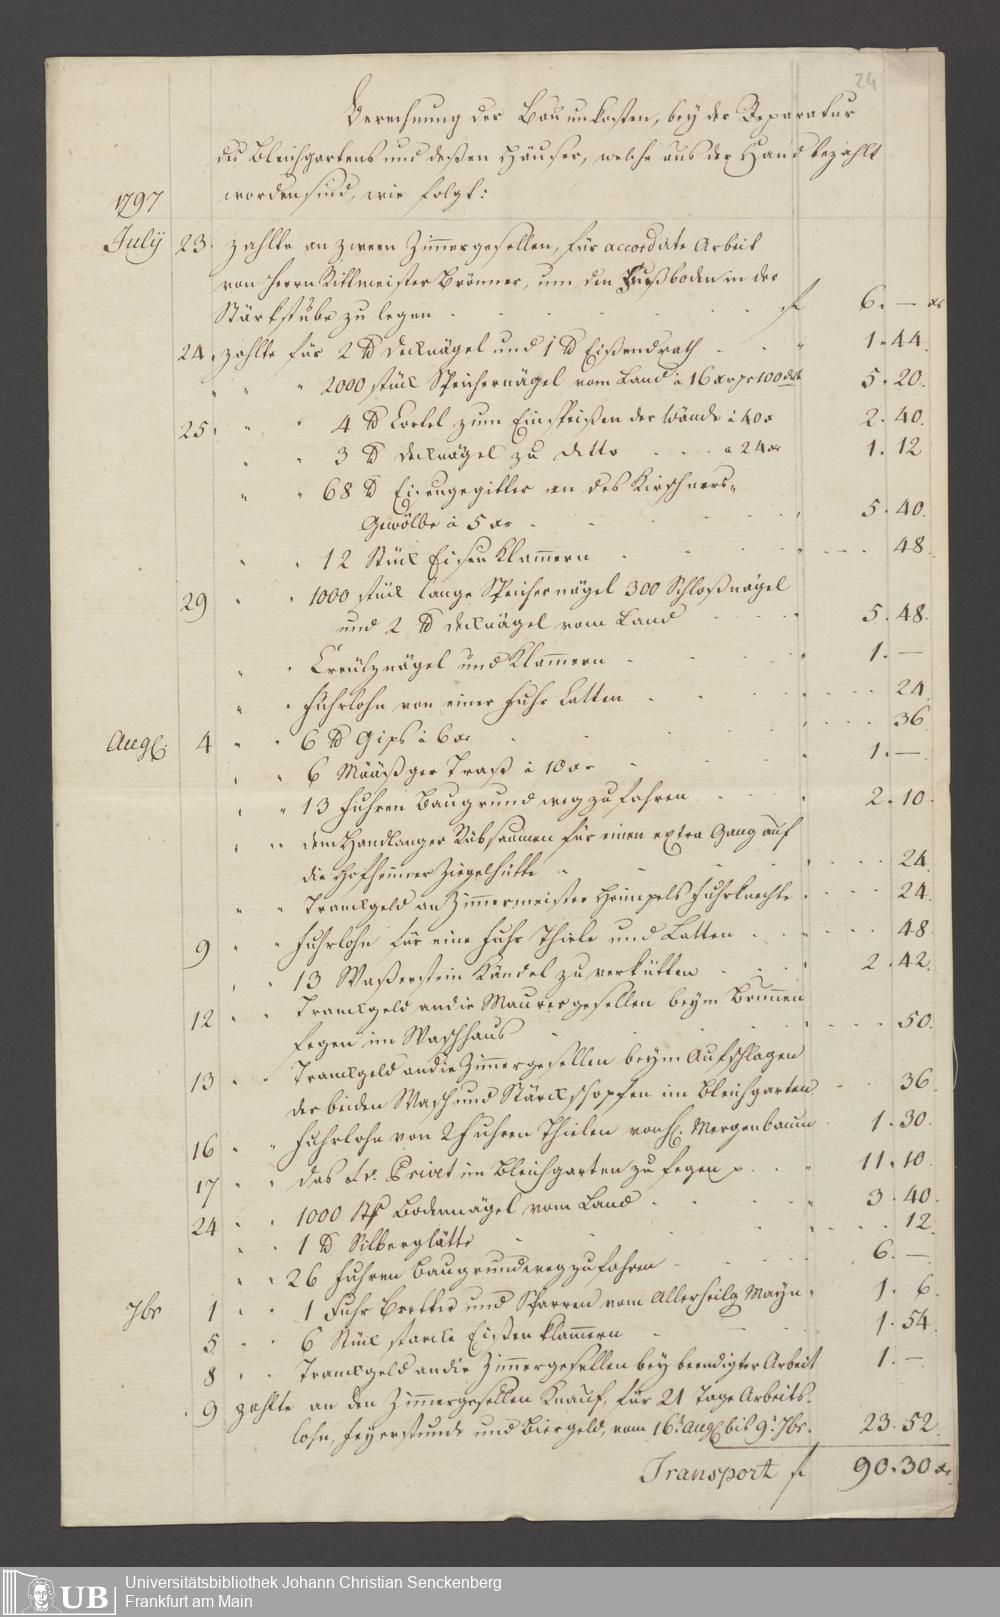 24
Berechnung der Bauunkosten, bey der Reparatur
des Bleichgartens und deßen Häuser, welche aus der Hand bezahlt
worden sind, wie folgt:
1797
July 23. zahlte an zween Zimmergesellen, für accordirte Arbeit
von Herrn Rittmeister Brönner, um den Fußboden in der
Stärkstube zu legen . . . f 6. — xr
24. zahlte für 2 ℔ Decknägel und 1 ℔ Eißendrath . . " 1.44.
" " 2000 stück Speichernägel vom Land à 16 xr pr 100 5.20.
25. " " 4 ℔ zum der Wände à 40 x 2.40.
" " 3 ℔ Decknägel zu ditto . . . à 24 xr 1.12
" " 68 ℔ Eisengegitter an des Kirschners-
Gewölbe à 5 xr . . . 5.40.
" " 12 Stück Eisen Klamern . . . 48.
29 " " 1000 stück lange Speichernägel 300 Schloßnägel
und 2 ℔ Decknägel vom Land . . 5.48.
" " Creutznägel und Klamern . . . 1.—
" " Fuhrlohn von einer Fuhr Latten . . . 24.
Aug. 4 " " 6 ℔ Gips à 6 xr . . . 36
" " 6 Määßger Traß à 10 xr . . . 1.—
" " 13 Fuhren Baugrund weg zu fahren . . . 2.10.
" " dem Handlanger Rübsaamen für einen extra Gang auf
die Hofheimer Ziegelhütte . . . 24.
" " Tranckgeld an Zimmermeister Hrimpels Fuhrknechte . . . 24.
9 " " Fuhrlohn für eine Fuhr Thiele und Latten . . . 48
" " 13 Waßerstein Kändel zu verkütten . . . 2.42.
12 " " Tranckgeld an die Maurergesellen beym Brunnen
fegen im Waschhaus . . . 50.
13 " " Tranckgeld an die Zimmergesellen beym Aufschlagen
der beiden Wasch und Stärckschopfen im Bleichgarten . . 36.
16 " " Fuhrlohn von 2 Fuhren Thielen von H. Mergenbaum . 1.30.
17 " " das Privet im Bleichgarten zu fegen . . 11.10.
24 " " 1000 Stk Bodennägel vom Land . . . 3.40.
" " 1 ℔ Silberglätte . . . 12.
" " 26 Fuhren Baugrund weg zu fahren . . . 6.—
7br 1 " " 1 Fuhr Bretter und Sparren vom Allerheilg Mayn " 1.6.
5 " " 6 Stück starcke Eißen Klamern . . 1.54.
8 " " Tranckgeld an die Zimmergesellen bey beendigter Arbeit 1.—
9 zahlte an den Zimmergesellen Knauf, für 21 Tage Arbeits-
lohn, Feyerstunde und Biergeld, vom 16. Aug bis 9. 7br. 23.52.
Transport f 90.30 xr
UB
Universitätsbibliothek Johann Christian Senckenberg
Frankfurt am Main